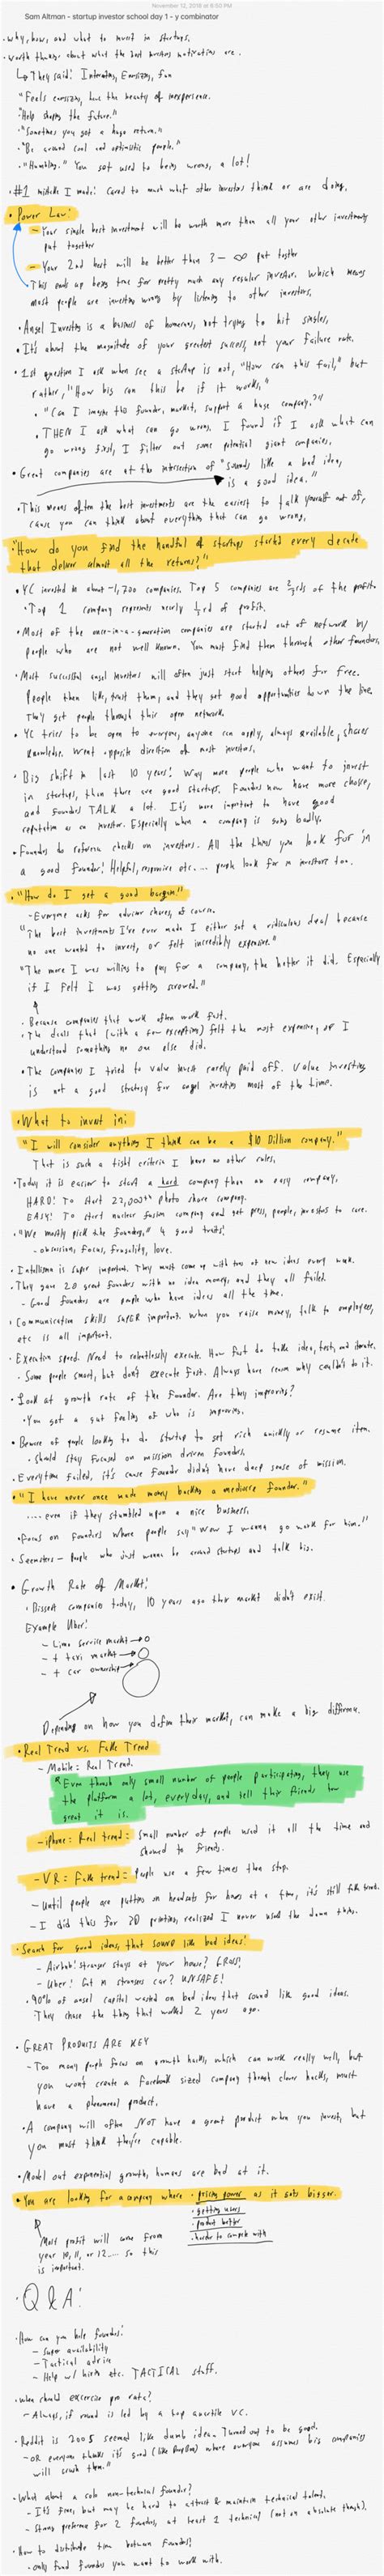 November 12, 2018 at 8:50 PM
Sam Altman - startup investor school day 1 - y combinator
• Why, how, and what to invest in startups.
• Worth thinking about what the best investors motivations are.
↳ They said: Interesting, Energizing, fun
"Feels energizing, have the beauty of inexperience.
"Help shape the future."
• "Sometimes you get a huge return."
• "Be around cool and optimistic people."
• "Humbling." You get used to being wrong, a lot!
• #1 mistake I made: Cared to much what other investors think or are doing.
• Power Law:
- Your single best investment will be worth more than all your other investments
put together
- Your 2nd best will be better than 3 - ∞ put together
• This ends up being true for pretty much any regular investor. Which means
most people are investing wrong by listening to other investors.
• Angel Investing is a business of homeruns, not trying to hit singles.
• It's about the magnitude of your greatest success, not your failure rate.
• 1st question I ask when see a startup is not, "How can this fail," but
rather, "How big can this be if it works."
• "Can I imagine this founder, market, support a huge company?"
• THEN I ask what can go wrong. I found if I ask what can
go wrong first, I filter out some potential giant companies.
• Great companies are at the intersection of "sounds like a bad idea,
is a good idea."
• This means often the best investments are the easiest to talk yourself out of,
cause you can think about everything that can go wrong.
• "How do you find the handful of startups started every decade
that deliver almost all the returns?"
• YC invested in about ~1,700 companies. Top 5 companies are 2/3rds of the profits
• Top 1 company represents nearly 1/3rd of profit.
• Most of the once-in-a-generation companies are started out of network by
people who are not well known. You must find them through other founders.
• Most successful angel investors will often just start helping others for free.
People then like, trust them, and they get good opportunities down the line.
They get people through their open network.
• YC tries to be open to everyone, anyone can apply, always available, shares
knowledge. Went opposite direction of most investors.
• Big shift in last 10 years: Way more people who want to invest
in startups, than there are good startups. Founders now have more choice,
and founders TALK a lot. It's more important to have good
reputation as an investor. Especially when a company is going badly.
• Founders do reference checks on investors. All the things you look for in
a good founder: Helpful, responsive etc... people look for in investors too.
• "How do I get a good bargain"
- Everyone asks for advisor shares, of course.
"The best investments I've ever made I either got a ridiculous deal because
no one wanted to invest, or felt incredibly expensive."
"The more I was willing to pay for a company, the better it did. Especially
if I felt I was getting screwed."
• Because companies that work often work fast.
• The deals that (with a few exceptions) felt the most expensive, or I
understood something no one else did.
• The companies I tried to value invest rarely paid off. Value investing
is not a good strategy for angel investing most of the time.
• What to invest in:
"I will consider anything I think can be a $10 Billion company."
That is such a tight criteria I have no other rules.
• Today it is easier to start a hard company than an easy company.
HARD: To start 22,000th photo share company.
EASY: To start nuclear fusion company and get press, people, investors to care.
• "We mostly pick the founders," 4 good traits:
- obsession, focus, frugality, love.
• Intelligence is super important. They must come up with tons of new ideas every week.
• They gave 20 great founders with no idea money, and they all failed.
- Good founders are people who have ideas all the time.
• Communication skills super important. When you raise money, talk to employees,
etc is all important.
• Execution speed. Need to relentlessly execute. How fast do take idea, test, and iterate.
• Some people smart, but don't execute fast. Always have reason why couldn't do it.
• Look at growth rate of the founder. Are they improving?
• You get a gut feeling of who is improving.
• Beware of people looking to do startup to get rich quickly or resume item.
• Should stay focused on mission driven founders.
• Everytime failed, it's cause founder didn't have deep sense of mission.
• "I have never once made money backing a mediocre founder."
.... even if they stumbled upon a nice business.
• Focus on founders where people say "Wow I wanna go work for him!"
• - People who just wanna be around startups and talk big.
• Growth Rate of Market:
• Biggest companies today, 10 years ago their market didn't exist.
Example Uber:
- Limo service market →
- + taxi market →
- + car ownership →
Depending on how you define their market, can make a big difference.
• Real Trend vs. Fake Trend
- Mobile: Real Trend.
"Even though only small number of people participating, they use
the platform a lot, everyday, and tell their friends how
great it is.
- iphone: Real trend: Small number of people used it all the time and
showed to friends.
- VR: Fake trend: People use a few times then stop.
- Until people are putting on headsets for hours at a time, it's still fake trend.
- I did this for 3D printing, realized I never used the damn thing.
• Search for good ideas, that sound like bad ideas!
- Airbnb: Stranger stays at your house? GROSS!
- Uber: Get in strangers car? UNSAFE!
• 90% of angel capital wasted on bad ideas that sound like good ideas.
They chase the thing that worked 2 years ago.
• GREAT PRODUCTS ARE KEY
- Too many people focus on growth hacks, which can work really well, but
you won't create a Facebook sized company through clever hacks, must
have a phenomenal product.
• A company will often NOT have a great product when you invest, but
you must think they're capable.
• Model out exponential growth, humans are bad at it.
• You are looking for a company where • pricing power as it gets bigger.
• getting users
• product better
• harder to compete with
Most profit will come from
year 10, 11, or 12.... so this
is important.
• Q & A:
• How can you help founders?
- Super availability
- Tactical advice
- Help w/ hiring etc. TACTICAL stuff.
• When should excercise pro rata?
- Always, if round is led by a top quartile VC.
• Reddit in 2005 seemed like dumb idea. Turned out to be good.
- OR everyone thinks it's good (like Dropbox) where everyone assumes big companies
will crush them."
• What about a solo non-technical founder?
- It's fine, but may be hard to attract & maintain technical talent.
- Strong preference for 2 founders, at least 1 technical (not an absolute though).
• How to distribute time between founders?
• Only fund founders you want to work with.